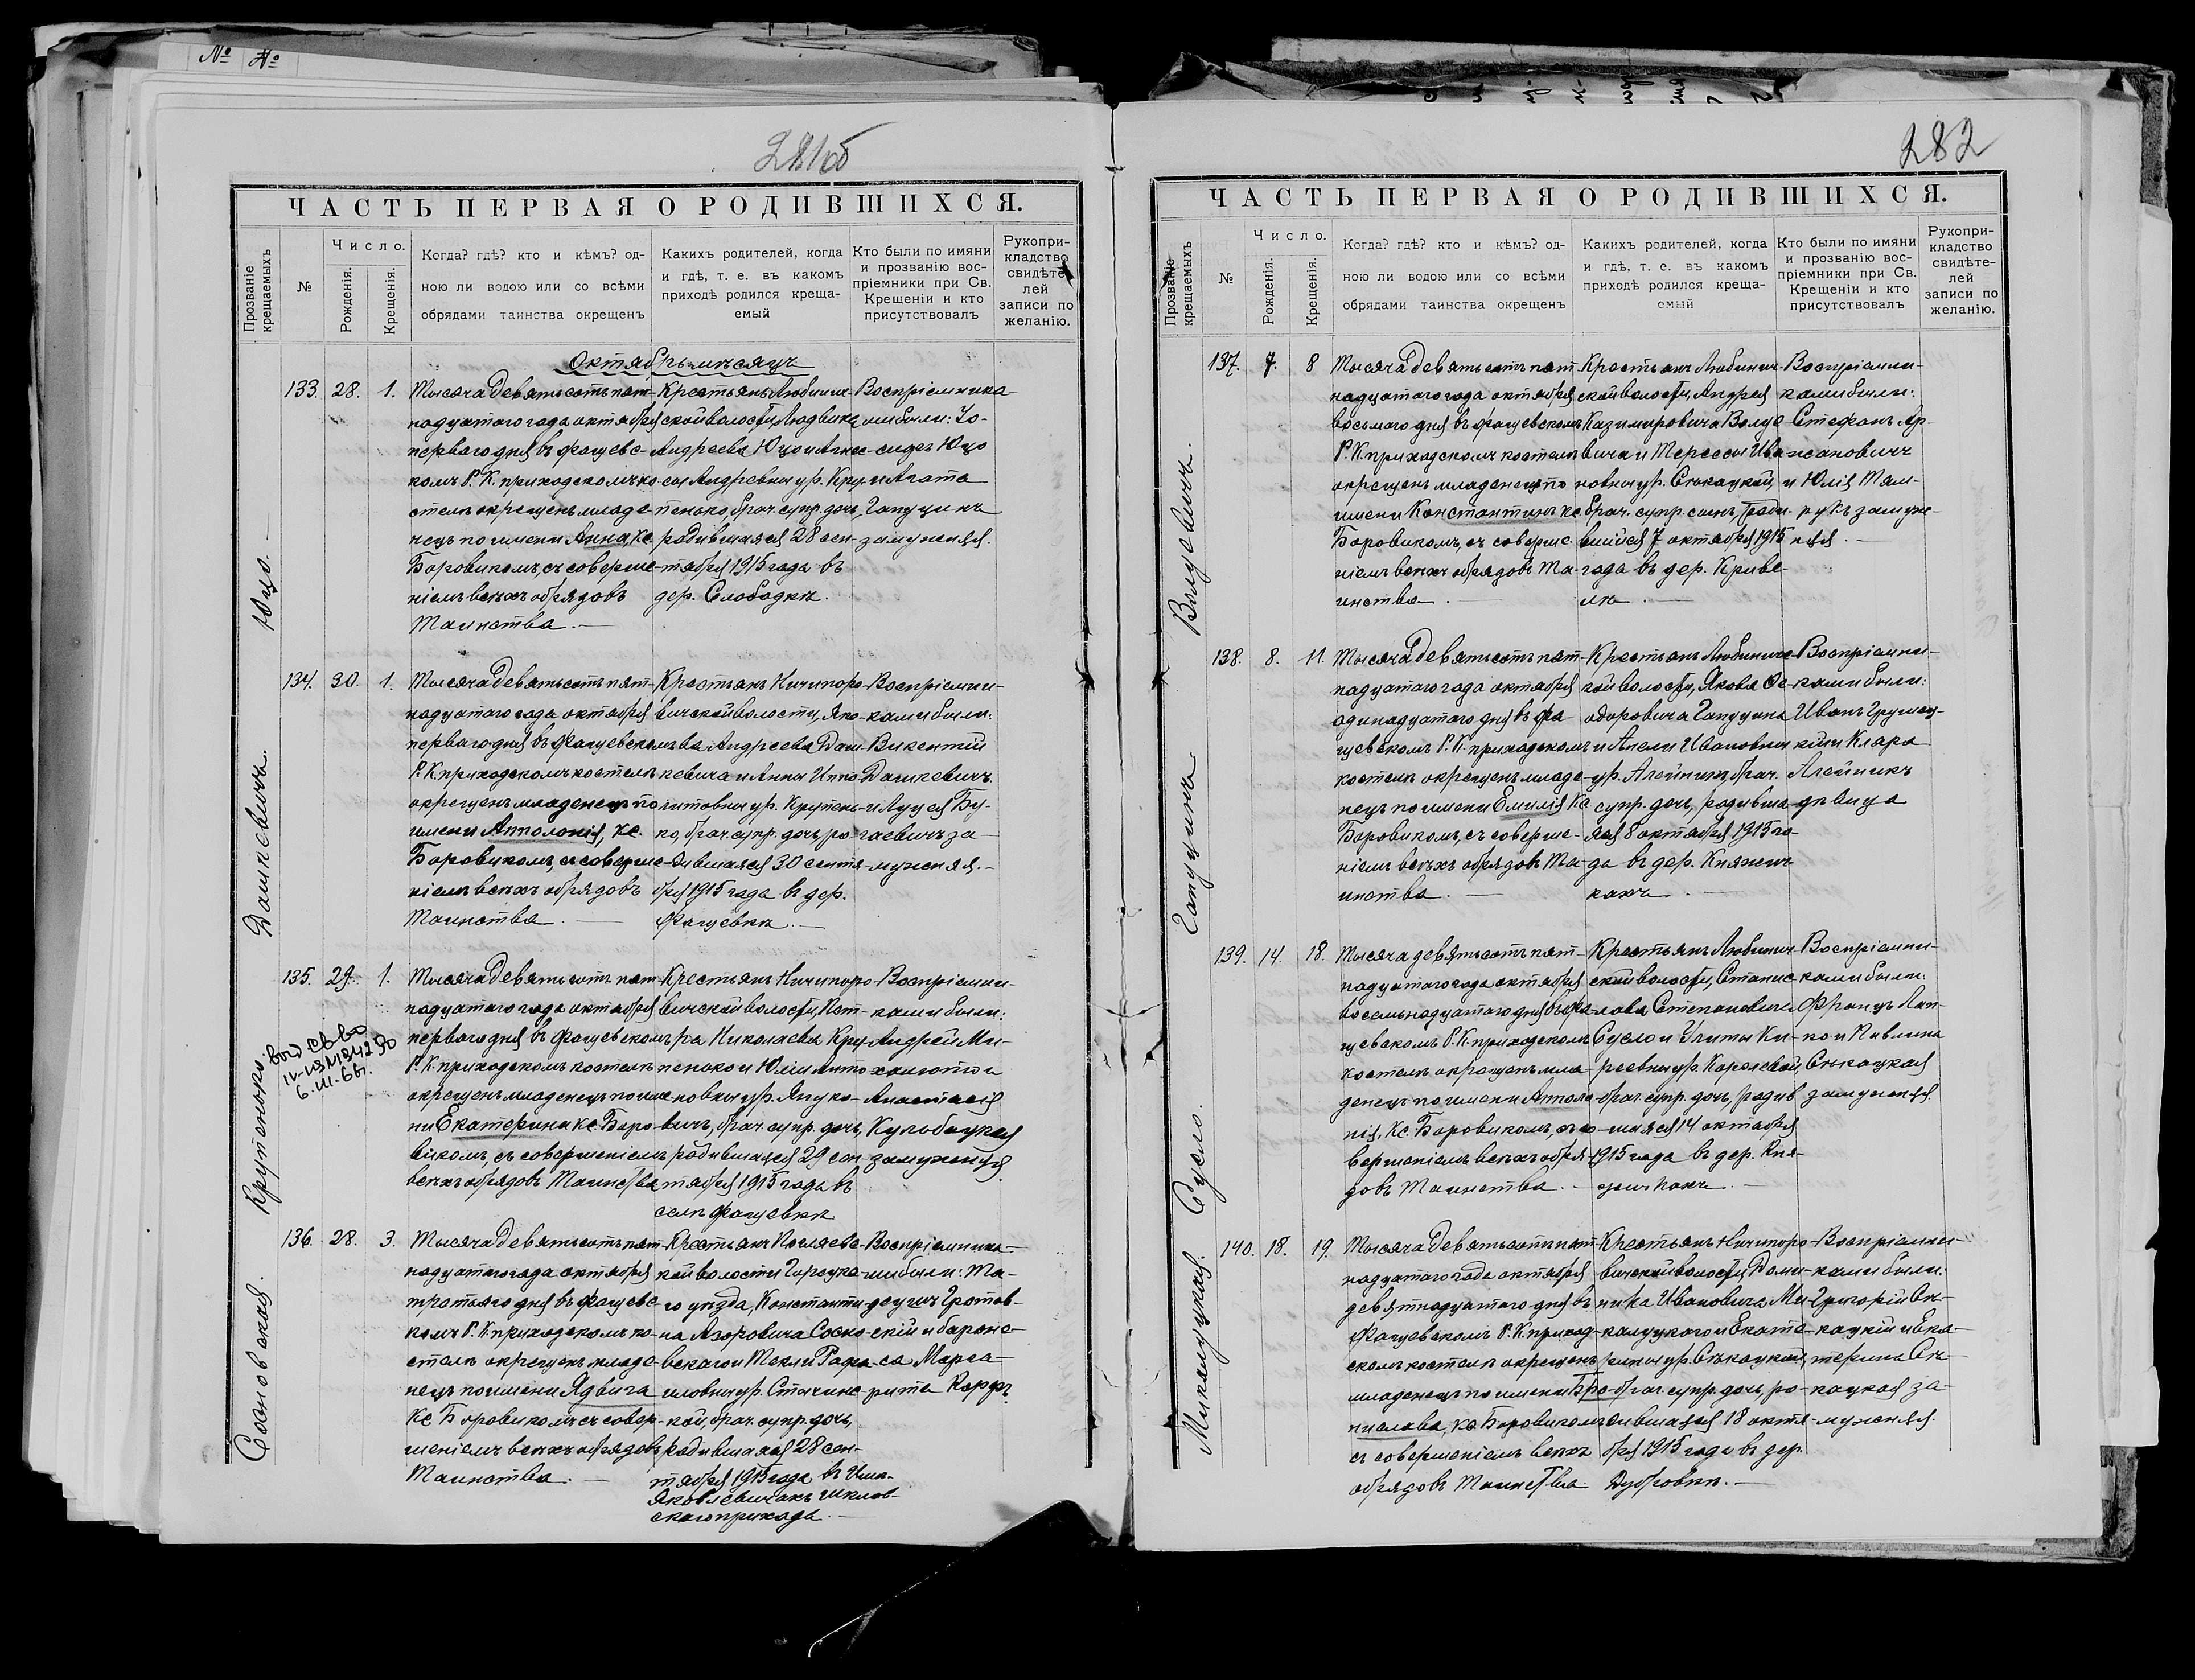 № №
281об
ЧАСТЬ ПЕРВАЯ О РОДИВШИХСЯ.
Прозваніе крещаемыхъ
№
Число.
Рожденія.
Крещенія.
Когда? гдѣ? кто и кѣмъ? од-
ною ли водою или со всѣми
обрядами таинства окрещенъ
Какихъ родителей, когда
и гдѣ, т. е. въ какомъ
приходѣ родился креща-
емый
Кто были по имяни
и прозванію вос-
пріемники при Св.
Крещеніи и кто
присутствовалъ
Рукопри-
кладство
свидѣте-
лей
записи по
желанію.
Октябрь мѣсяцъ
Юцо.
133. 28. 1.
Тысяча девятьсотъ пят-
надцатаго года октября
перваго дня въ Фащевс-
комъ Р. К. приходскомъ ко-
стелѣ окрещенъ младе-
нецъ по имени Анна, Кс.
Боровикомъ, съ соверше-
ніемъ всѣхъ обрядовъ
Таинства.
Крестьянъ Любинич-
ской волости, Людвика
Андреева Юцо и Агнес-
сы Андревны ур. Кру-
пенько, брач. супр. дочь,
родившаяся 28 сен-
тября 1915 года въ
дер. Слободкѣ.
Воспріемника-
ми были: Іо-
сифъ Юцо
и Агата
Гапуцинъ
замужняя.
Дашкевичъ.
134. 30. 1.
Тысяча девятьсотъ пят-
надцатаго года октября
перваго дня въ Фащевскомъ
Р. К. приходскомъ костелѣ
окрещенъ младенецъ по
имени Апполонія, Кс.
Боровикомъ, съ соверше-
ніемъ всѣхъ обрядовъ
Таинства.
Крестьянъ Ничипоро-
вичской волости, Яко-
ва Андреева Даш-
кевича и Анны Иппо-
литовны ур. Крутень-
ко, брач. супр. дочь, ро-
дившаяся 30 сентя-
бря 1915 года въ дер.
Фащевкѣ.
Воспріемни-
ками были:
Викентій
Дашкевичъ
и Луція Бу-
гаевичъ за-
мужняя.
Крутенько.
Выд св-во
IV-ИЗ №184290
6.III.56г.
135. 29. 1.
Тысяча девятьсотъ пят-
надцатаго года октября
перваго дня въ Фащевскомъ
Р. К. приходскомъ костелѣ
окрещенъ младенецъ по име-
ни Екатерина Кс. Боро-
викомъ, съ совершеніемъ
всѣхъ обрядовъ Таинства
Крестьянъ Ничипоро-
вичской волости, Пет-
ра Николаева Кру-
пенько и Юліи Анто-
новны ур. Яцко-
вичъ, брач. супр. дочь,
родившаяся 29 сен-
тября 1915 года въ
селѣ Фащевкѣ
Воспріемни-
ками были:
Андрей Ми-
и
Анастасія
Кулобацкая
замужняя.
Сосновская.
136. 28. 3.
Тысяча девятьсотъ пят-
надцатаго года октября
третьяго дня въ Фащевс-
комъ Р. К. приходскомъ ко-
стелѣ окрещенъ младе-
нецъ по имени Ядвига
Кс. Боровикомъ съ совер-
шеніемъ всѣхъ обрядовъ
Таинства.
Крестьянъ
кой волости Горецка-
го уѣзда, Константи-
на Азоровича Сосно-
вскаго и Текли Рафа-
иловны ур. Стачинс-
кой, брач. супр. дочь,
родившаяся 28 сен-
тября 1915 года въ Има.
Яковлевичахъ Шклов-
скаго прихода.
Воспріемника-
ми были: Та-
деушъ Гротов-
скій и бароне-
са Марга-
рита Корфъ
282
ЧАСТЬ ПЕРВАЯ О РОДИВШИХСЯ.
Прозваніе крещаемыхъ
№
Число.
Рожденія.
Крещенія.
Когда? гдѣ? кто и кѣмъ? од-
ною ли водою или со всѣми
обрядами таинства окрещенъ
Какихъ родителей, когда
и гдѣ, т. е. въ какомъ
приходѣ родился креща-
емый
Кто были по имяни
и прозванію вос-
пріемники при Св.
Крещеніи и кто
присутствовалъ
Рукопри-
кладство
свидѣте-
лей
записи по
желанію.
Валуевичъ.
137. 7. 8
Тысяча девятьсотъ пят-
надцатаго года октября
восьмаго дня въ Фащевскомъ
Р. К. приходскомъ костелѣ
окрещенъ младенецъ по
имени Константинъ Кс.
Боровикомъ, съ соверше-
ніемъ всѣхъ обрядовъ Та-
инства.
Крестьянъ Любинич-
ской волости, Андрея
Казимировича Валуе-
вича и Терессы Ива-
новны ур. Снкацкой,
брач. супр. сынъ, роди-
вшійся 7 октября 1915
года въ дер. Криве-
лѣ.
Воспріемни-
ками были:
Стефанъ Ар-
и Юлія
замуж-
няя.
Гапуцина
138. 8. 11.
Тысяча девятьсотъ пят-
надцатаго года октября
одинадцатаго дня въ Фа-
щевскомъ Р. К. приходскомъ
костелѣ окрещенъ младе-
нецъ по имени Емилія Кс.
Боровикомъ, съ соверше-
ніемъ всѣхъ обрядовъ Та-
инства.
Крестьянъ Любиничс-
кой волости, Якова Ѳе-
одоровича Гапуцина
и Анели Ивановны
ур. Алейникъ, брач.
супр. дочь, родивша-
яся 8 октября 1915 го-
да въ дер. Княжич-
кахъ.
Воспріемни-
ками были:
Иванъ Грушец-
кій и Клара
Алейникъ
дѣвица
Сусло.
139. 14. 18.
Тысяча девятьсотъ пят-
надцатаго года октября
восемьнадцатаго дня въ Фа-
щевскомъ Р. К. приходскомъ
костелѣ окрещенъ мла-
денецъ по имени Аппола-
нія, Кс. Боровикомъ, съ со-
вершеніемъ всѣхъ обря-
довъ Таинства.
Крестьянъ Любинич-
ской волости, Станис-
лава Степановича
Сусло и Улиты Ки-
реевны ур. Королевой,
брач. супр. дочь, родив-
шаяся 14 октября
1915 года въ дер. Кня-
жичкахъ.
Воспріемни-
ками были:
Францъ Лап-
ко и Павлина
Снкацкая
замужняя.
Микалуцкая.
140. 18. 19.
Тысяча девятьсотъ пят-
надцатаго года октября
девятнадцатаго дня въ
Фащевскомъ Р. К. приход-
скомъ костелѣ окрещенъ
младенецъ по имени Бро-
нислава, Кс. Боровикомъ
съ совершеніемъ всѣхъ
обрядовъ Таинства
Крестьянъ Ничипоро-
вичской волости, Доми-
ника Ивановича Ми-
калуцкого и Екате-
рины ур. Снкацкой,
брач. супр. дочь, ро-
дившаяся 18 октя-
бря 1915 года въ дер.
Дубровкѣ.
Воспріемни-
ками были:
Григорій Сн-
кацкій и Ека-
терина Сн-
кацкая за-
мужняя.